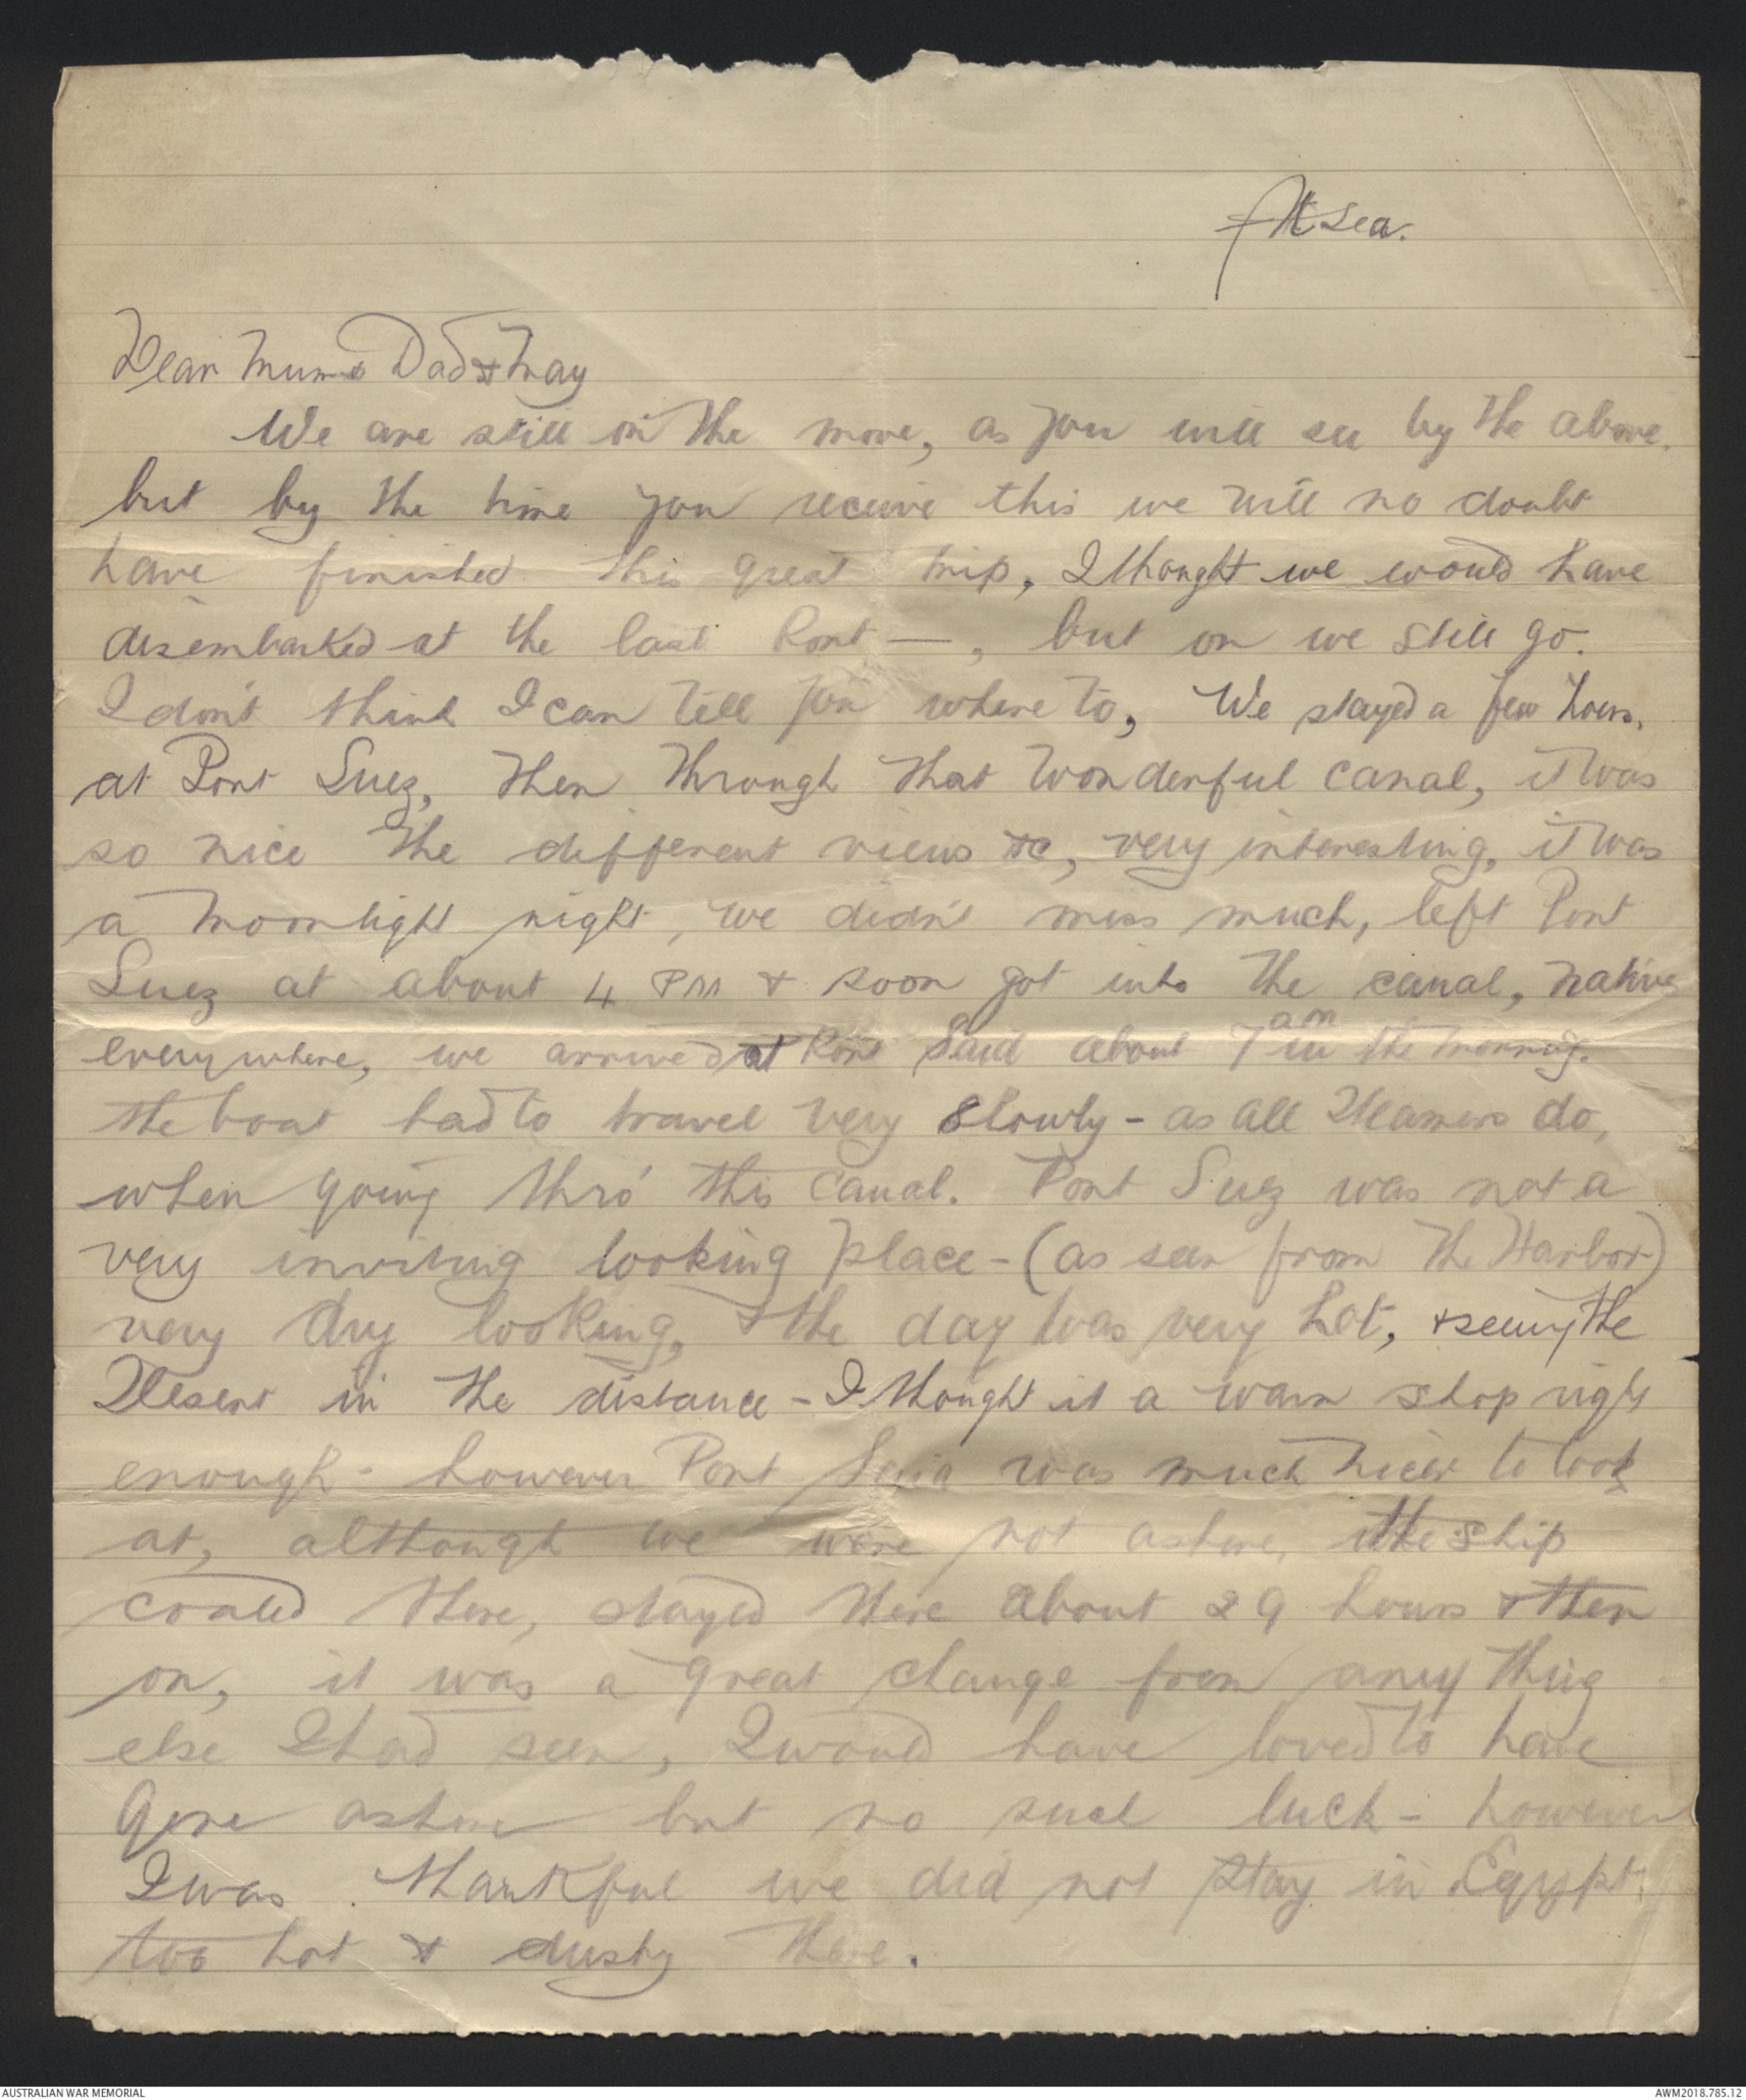 At Sea.
Dear Mum & Dad & May
We are still on the move, as you will see by the above.
but by the time you receive this we will no doubt
have finished this great trip, I thought we would have
disembarked at the last Port —, but on we still go.
I don't think I can tell you where to, We stayed a few hours.
at Port Suez, then through that wonderful canal, it was
so nice the different views &c, very interesting, it was
a moonlight night, we didn't miss much, left Port
Suez at about 4 PM & soon got into the canal, natives
everywhere, we arrived at Port Said about 7 am in the morning.
the boat had to travel very slowly - as all steamers do,
when going thro' this canal. Port Suez was not a
very inviting looking place - (as seen from the Harbor)
very dry looking, & the day was very hot, & seeing the
Desert in the distance - I thought it a warm shop right
enough - however Port Said was much nicer to look
at, although we were not ashore, the ship
coaled there, stayed there about 29 hours & then
on, it was a great change from any thing
else I had seen, I would have loved to have
gone ashore but no such luck - however
I was thankful we did not stay in Egypt.
too hot & dusty there.
AUSTRALIAN WAR MEMORIAL
AWM2018.785.12